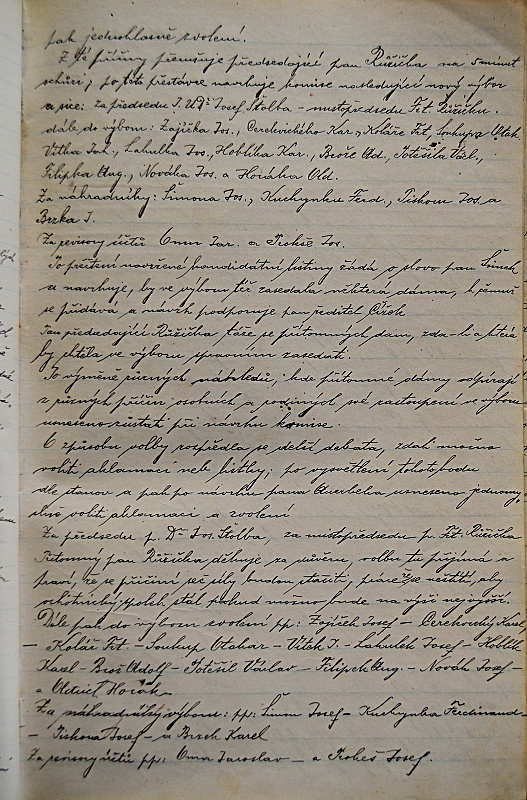 pak jednohlasně zvoleni.
Z té příčiny přerušuje předsedající pan Růžička na 5 minut
schůzi; po této přestávce navrhuje komise následující nový výbor
a sice: za předsedu J. UDr Josef Štolba – místopředsedu Fr. Růžičku.
dále do výboru: Zajíčka Jos., Cerekvického Kar., Koláře Fr., Soukupa Otak.
Vítka Joh., Lahulka Jos., Hoblíka Kar., Brože Ad., Potěšila Václ.,
Filipka Aug., Nováka Jos. a Horáka Old.
Za náhradníky: Šimona Jos., Kuchynku Ferd., Piskoru Jos. a
Brzka J.
Za revisory účtů Oma Jar. a Prokše Jos.
Po přečtení navržené kandidátní listiny žádá o slovo pan Šimek
a navrhuje, by ve výboru též zasedala některá dáma, k čemuž
se přidává a návrh podporuje pan ředitel Čížek
Pan předsedající Růžička táže se přítomných dam, zda-li a která
by chtěla ve výboru správním zasedati.
Po výměně různých náhledů, kde přítomné dámy odpírají
z různých příčin osobních a rodinných své zastoupení ve výboru
usneseno zůstati při návrhu komise.
O způsobu volby rozpředla se delší debata, zdali možno
voliti aklamací neb lístky; po vysvětlení tohoto bodu
dle stanov a pak po návrhu pana Auerbeka usneseno jednomy-
slně voliti aklamací a zvoleni
Za předsedu p. Dr Jos. Štolba, za místopředsedu p. Fr. Růžička
Přítomný pan Růžička děkuje za důvěru, volbu tu přijímá a
praví, že se přičiní seč síly budou stačiti, práce se neštítí, aby
ochotnický spolek stál pokud možno bude na výši nejvyšší.
Dále pak do výboru zvoleni pp: Zajíček Josef – Cerekvický Karel
– Kolář Fr. – Soukup Otakar – Vítek J. – Lahulek Josef – Hoblík
Karel – Brož Adolf – Potěšil Václav – Filipek Aug. – Novák Josef –
a Oldřich Horák
Za náhradníky výboru: pp: Šimon Josef – Kuchynka Ferdinand –
– Piskora Josef – a Brzek Karel
Za revisory účtů pp: Oma Jaroslav – a Prokeš Josef.